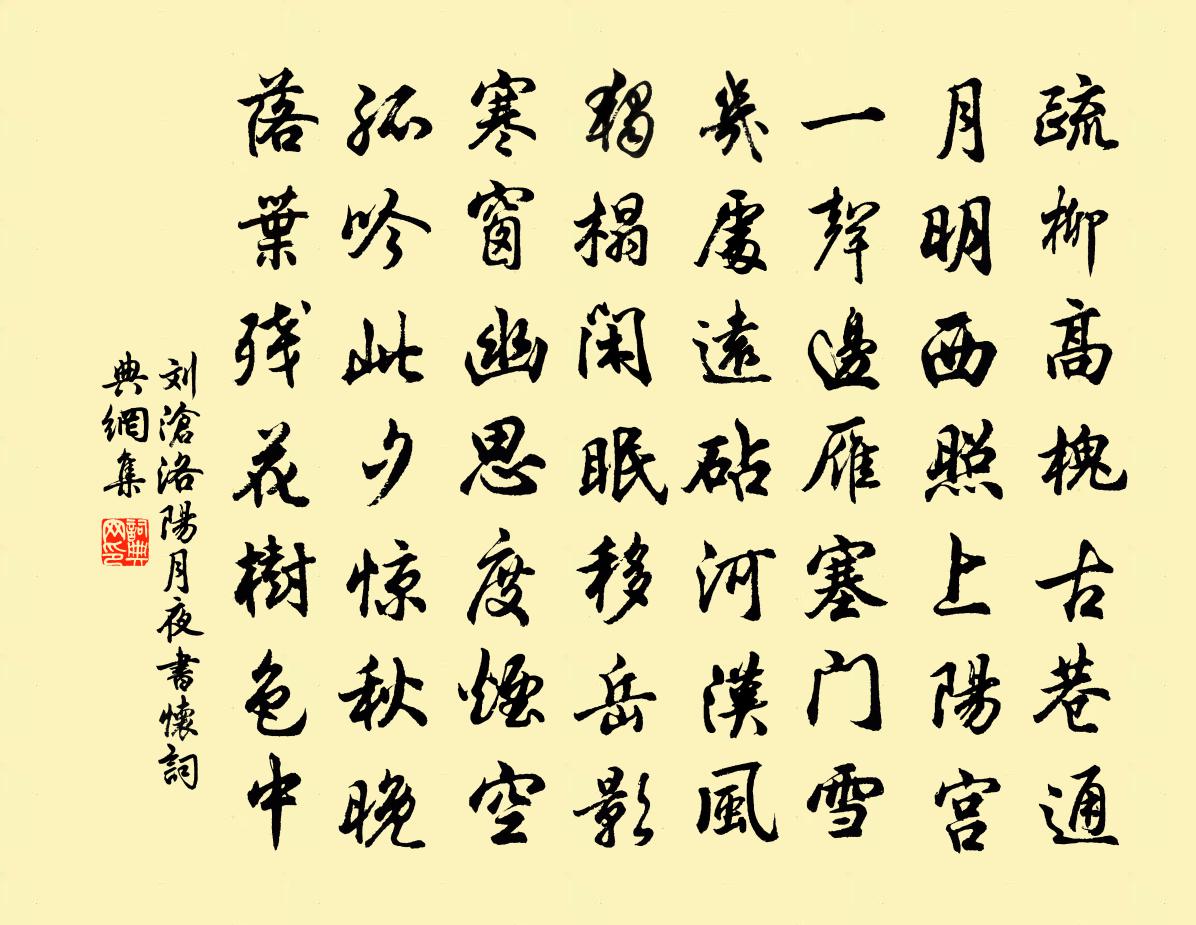 疏柳高槐古巷通
月明西照上陽宮
一聲邊雁塞门雪
幾處遠砧河漢風
獨榻閑眠移岳影
寒窗幽思度煙空
孤吟此夕惊秋晚
落葉残花樹色中
刘滄洛陽月夜書懷詞
典網集
詞典
网印